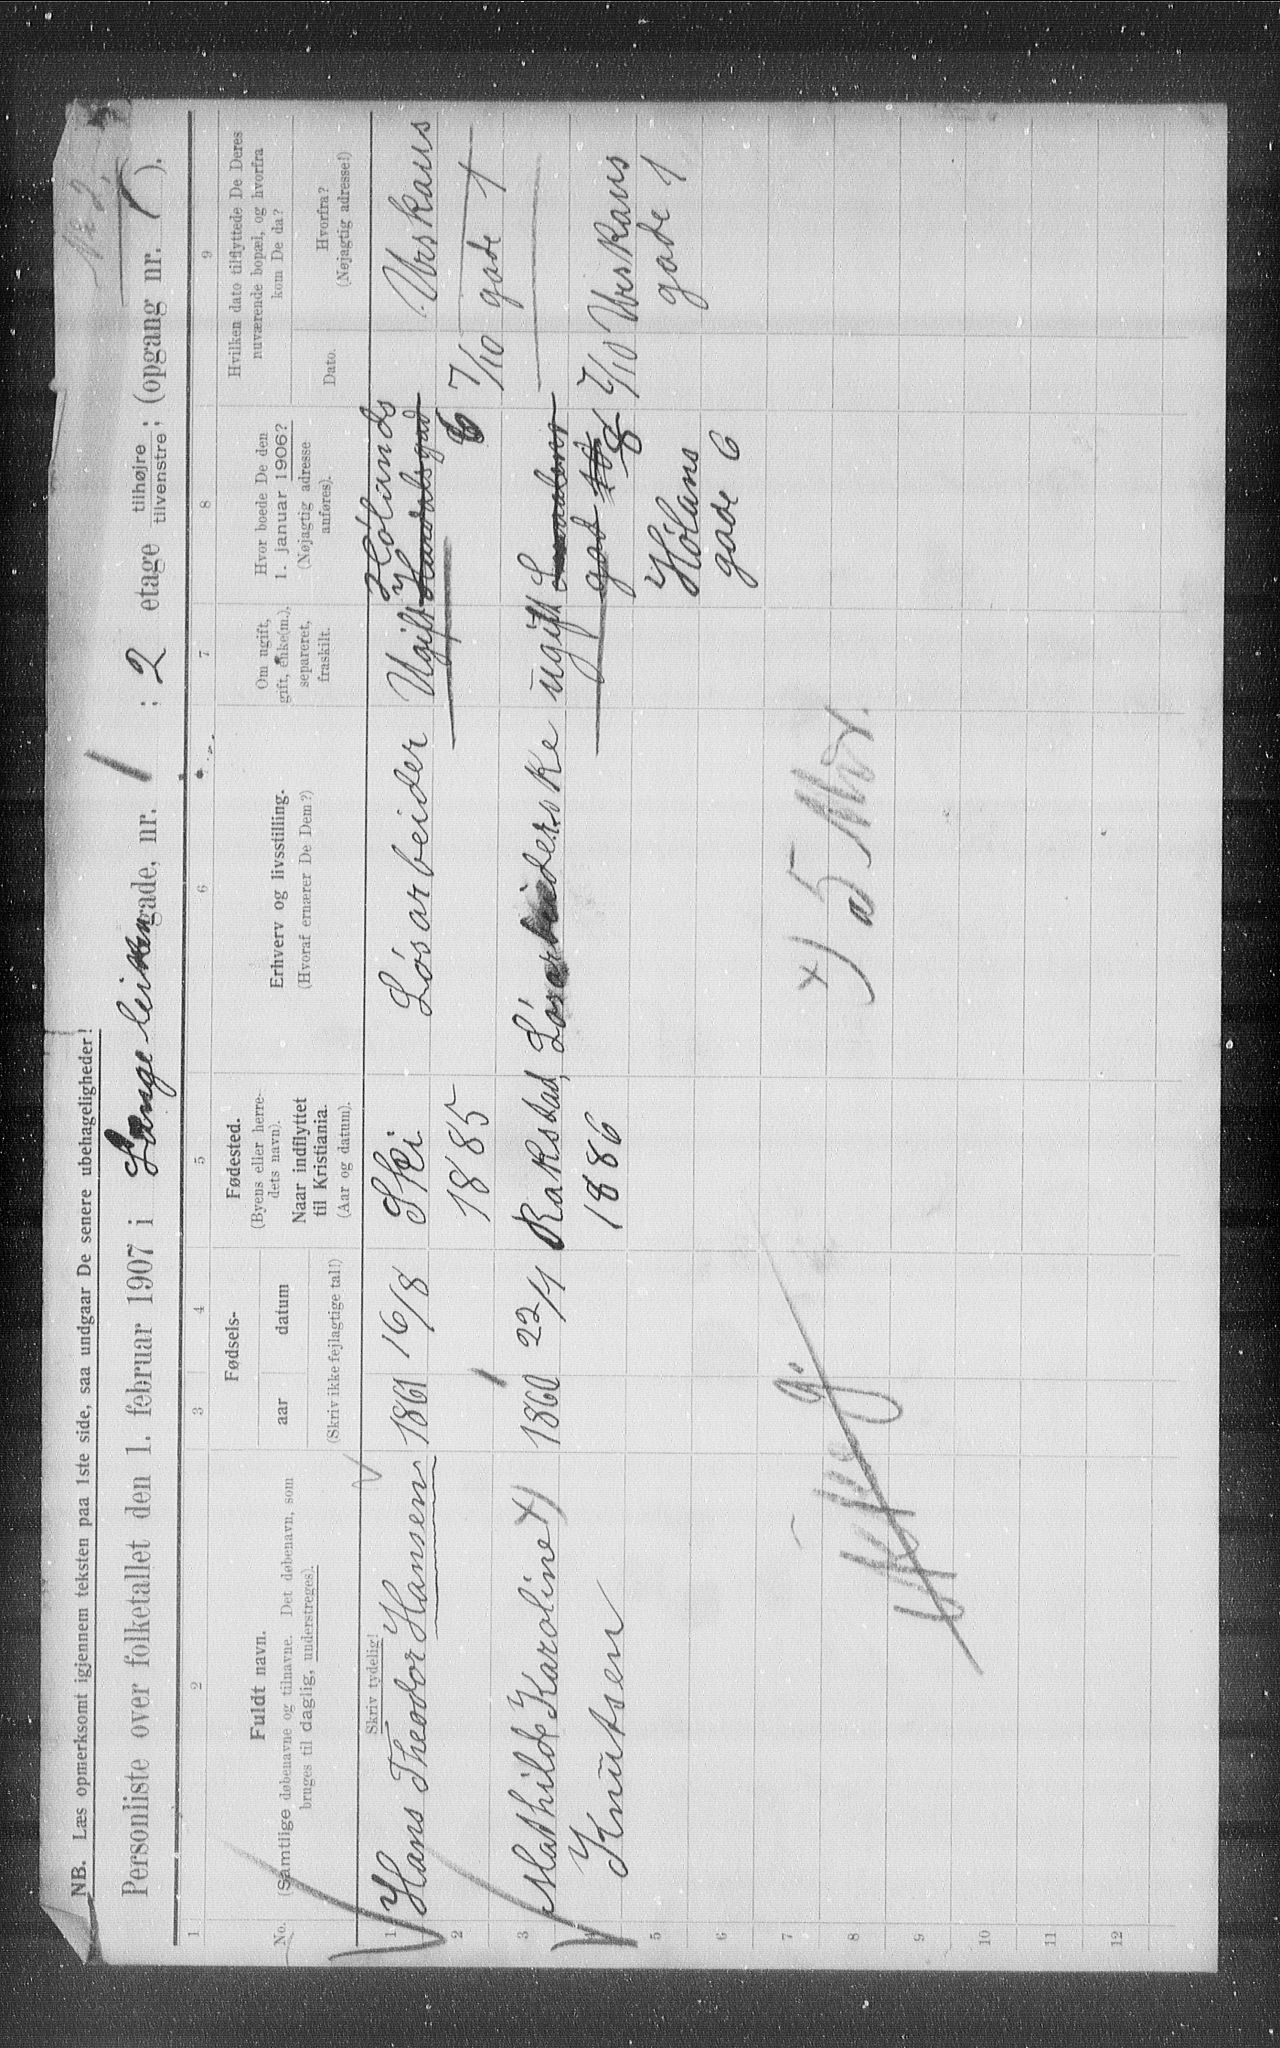 NB. Læs opmerksomt igjennem teksten paa 1ste side, saa undgaar De senere ubehageligheder!
Personliste over folketallet den 1. februar 1907 i Langeleiken gade, nr. 1 ; 2 etage tilhøjre tilvenstre; (opgang nr. 1 ).
1 2 3 4 5 6 7 8 9
No.
Fuldt navn.
(Samtlige døbenavne og tilnavne. Det døbenavn, som
bruges til daglig, understreges).
Skriv tydelig!
Fødsels-
aar datum
(Skriv ikke fejlagtige tal!)
Fødested.
(Byens eller herre-
dets navn).
Naar indflyttet
til Kristiania.
(Aar og datum).
Erhverv og livsstilling.
(Hvoraf ernærer De Dem?)
Om ugift,
gift, enke(m.),
separeret,
fraskilt.
Hvor boede De den
1. januar 1906?
(Nøjagtig adresse
anføres).
Hvilken dato tilflyttede De Deres
nuværende bopæl, og hvorfra
kom De da?
Dato.
Hvorfra?
(Nøjagtig adresse!)
1 Hans Theodor Hansen 1861 16/8 Ski Løsarbeider Ugift Hølands Urskaus
2 1885 6 7/10 gade 1
3 Mathilde Karoline x) 1860 22/1 Rakstad, Løsarbeiderske ugift
4 Knutsen 1886 gad 8 7/10 Urskaus
5 Hølans gade 1
6 gade 6
7
8 x) 5
9
10
11
12